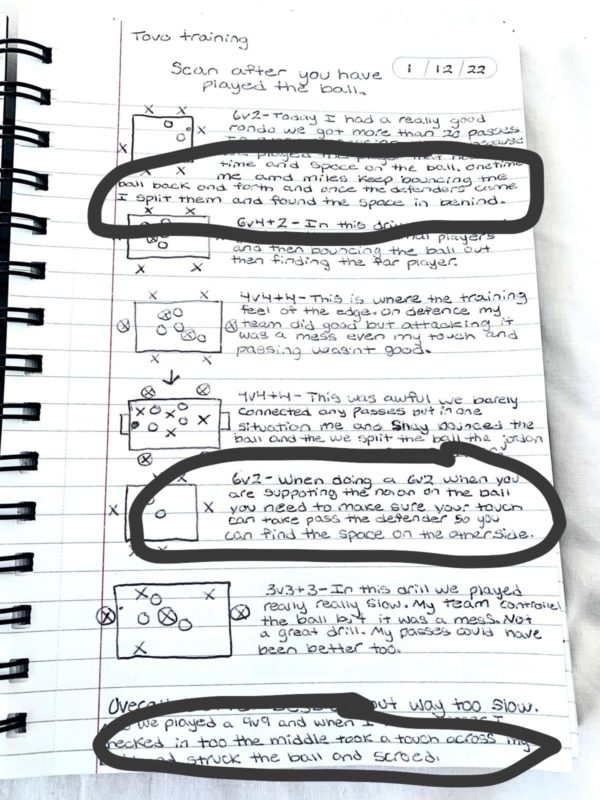 Tovo training
Scan after you have
played the ball.
1 / 12 / 22
6v2 - Today I had a really good
rondo we got more than 20 passes
time and space on the ball. one time
me amd miles keep bouncing the
ball back and forth and once the defenders came
I split them and found the space in behind.
6v4+2 - In this
players
and then bouncing the ball out
then finding the far player.
4v4+4 - This is where the training
feel of the edge. on defence my
team did good but attacking it
was a mess even my touch and
passing wasn't good.
4v4+4 - This was awful we barely
connected any passes but in one
situation me and Shay bounced the
ball and the we split the ball the jordan
6v2 - When doing a 6v2 when you
are suppoting the on the ball
you need to make sure your touch
can take pass the defender so you
can find the space on the otherside.
3v3+3 - In this drill we played
really really slow. My team controlled
the ball but it was a mess. Not
a great drill. My passes could have
been better too.
but way too slow.
we played a 9v9 and when I
checked in too the middle took a touch across my
struck the ball and scroed.